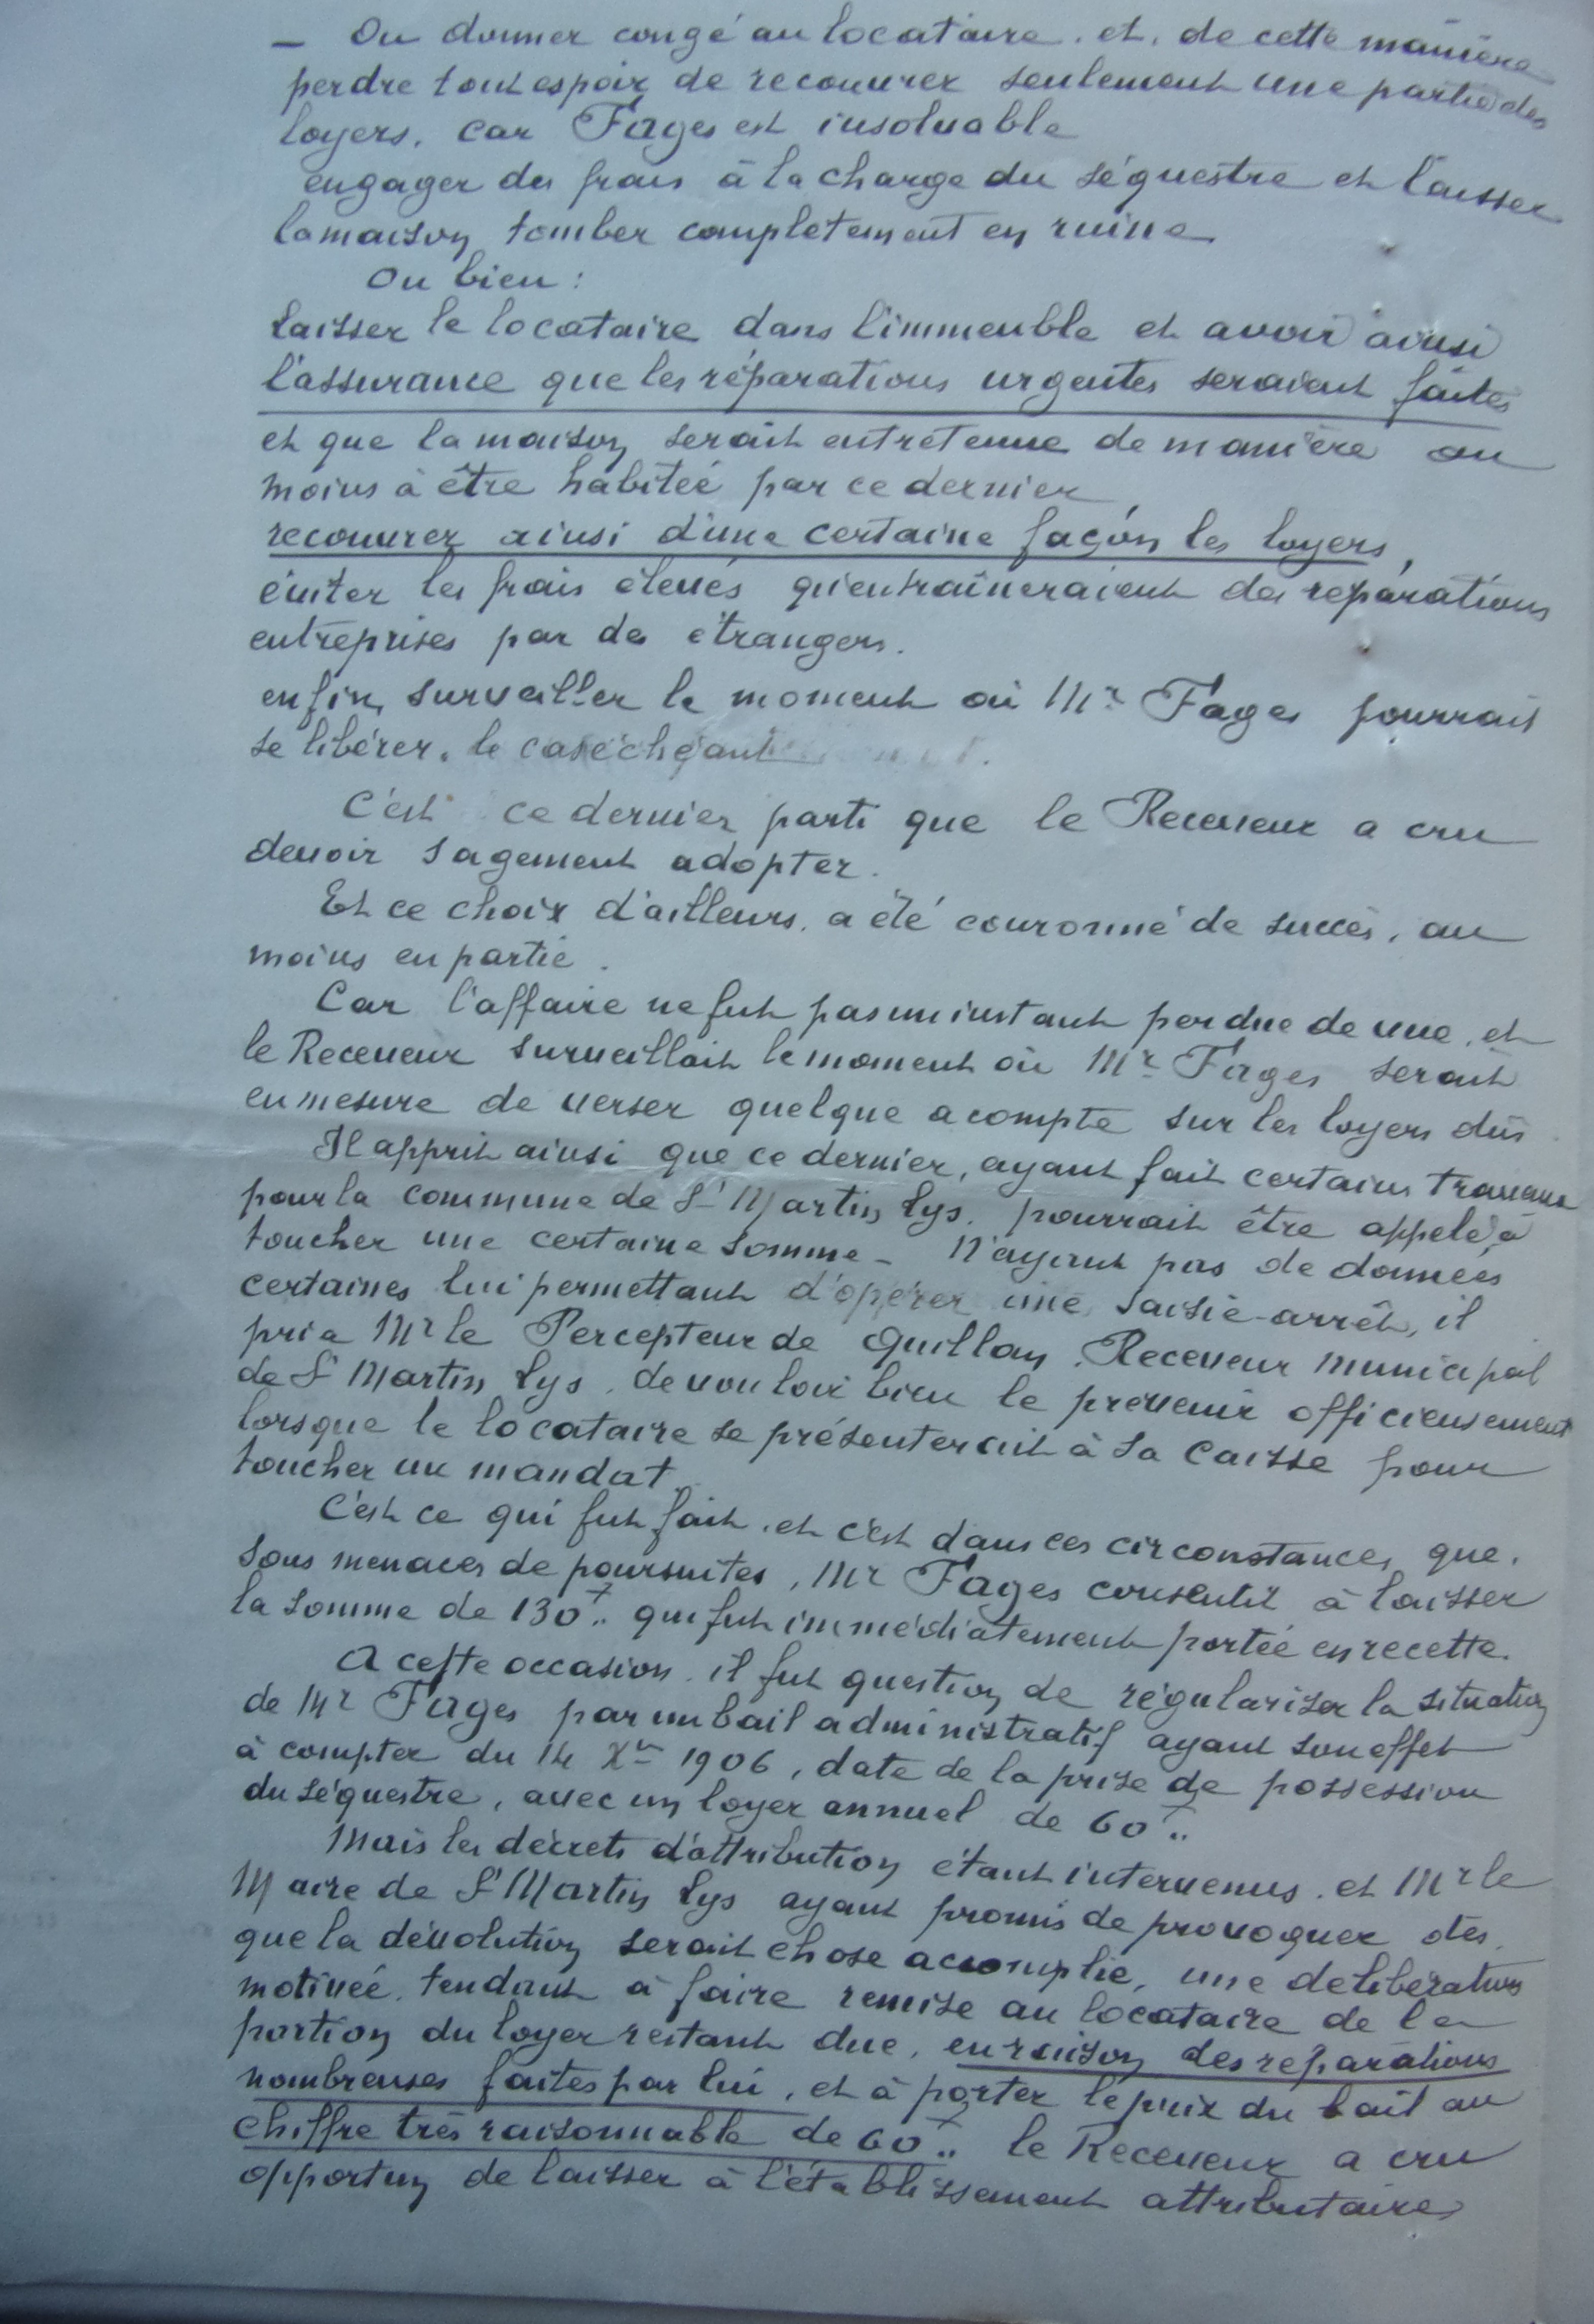 — Ou donner congé au locataire. et, de cette manière
perdre tout espoir de recouvrer seulement une partie des
loyers, car Fages est insolvable
engager des frais à la charge du séquestre et laisser
la maison tomber complètement en ruine
Ou bien :
laisser le locataire dans l'immeuble et avoir ainsi
l'assurance que les réparations urgentes seraient faites
et que la maison serait entretenue de manière au
moins à être habitée par ce dernier
recouvrer ainsi d'une certaine façon les loyers,
éviter les frais élevés qu'entraîneraient des réparations
entreprises par des étrangers.
enfin, surveiller le moment où Mr Fages pourrait
se libérer, le cas échéant
C'est ce dernier parti que le Receveur a cru
devoir sagement adopter.
Et ce choix d'ailleurs, a été couronné de succès, au
moins en partie.
Car l'affaire ne fut pas un instant perdue de vue, et
le Receveur surveillait le moment où Mr Fages serait
en mesure de verser quelque acompte sur les loyers dûs
Il apprit ainsi que ce dernier, ayant fait certains travaux
pour la commune de St Martin Lys, pourrait être appelé à
toucher une certaine somme - N'ayant pas de données
certaines lui permettant d'opérer une saisie-arrêt, il
pria Mr le Percepteur de Quillan, Receveur municipal
de St Martin Lys, de vouloir bien le prévenir officieusement
lorsque le locataire se présenterait à sa caisse pour
toucher un mandat.
C'est ce qui fut fait, et c'est dans ces circonstances, que,
sous menaces de poursuites, Mr Fages consentit à laisser
la somme de 130f.. qui fut immédiatement portée en recette.
A cette occasion, il fut question de régulariser la situation
de Mr Fages par un bail administratif ayant son effet
à compter du 14 Xre 1906, date de la prise de possession
du séquestre, avec un loyer annuel de 60f..
Mais les décrets d'attribution étant intervenus, et Mr le
Maire de St Martin Lys ayant promis de provoquer dès
que la dévolution serait chose accomplie, une délibération
motivée, tendant à faire remise au locataire de la
portion du loyer restant due, en raison des réparations
nombreuses faites par lui, et à porter le prix du bail au
chiffre très raisonnable de 60f.. le Receveur a cru
opportun de laisser à l'établissement attributaire